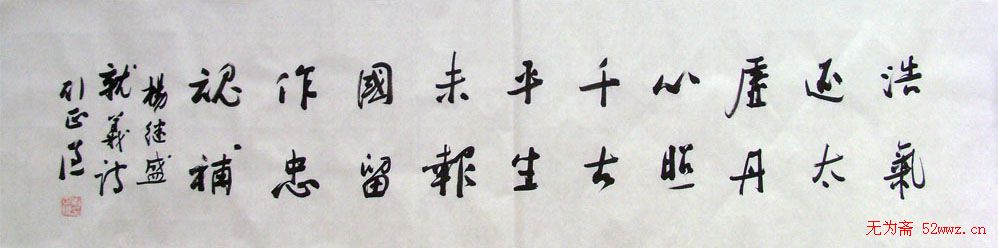 浩氣
还太
虛丹
心照
千古
平生
未報
國留
作忠
魂補
楊继盛
就義詩
无为斋 52wwz.cn